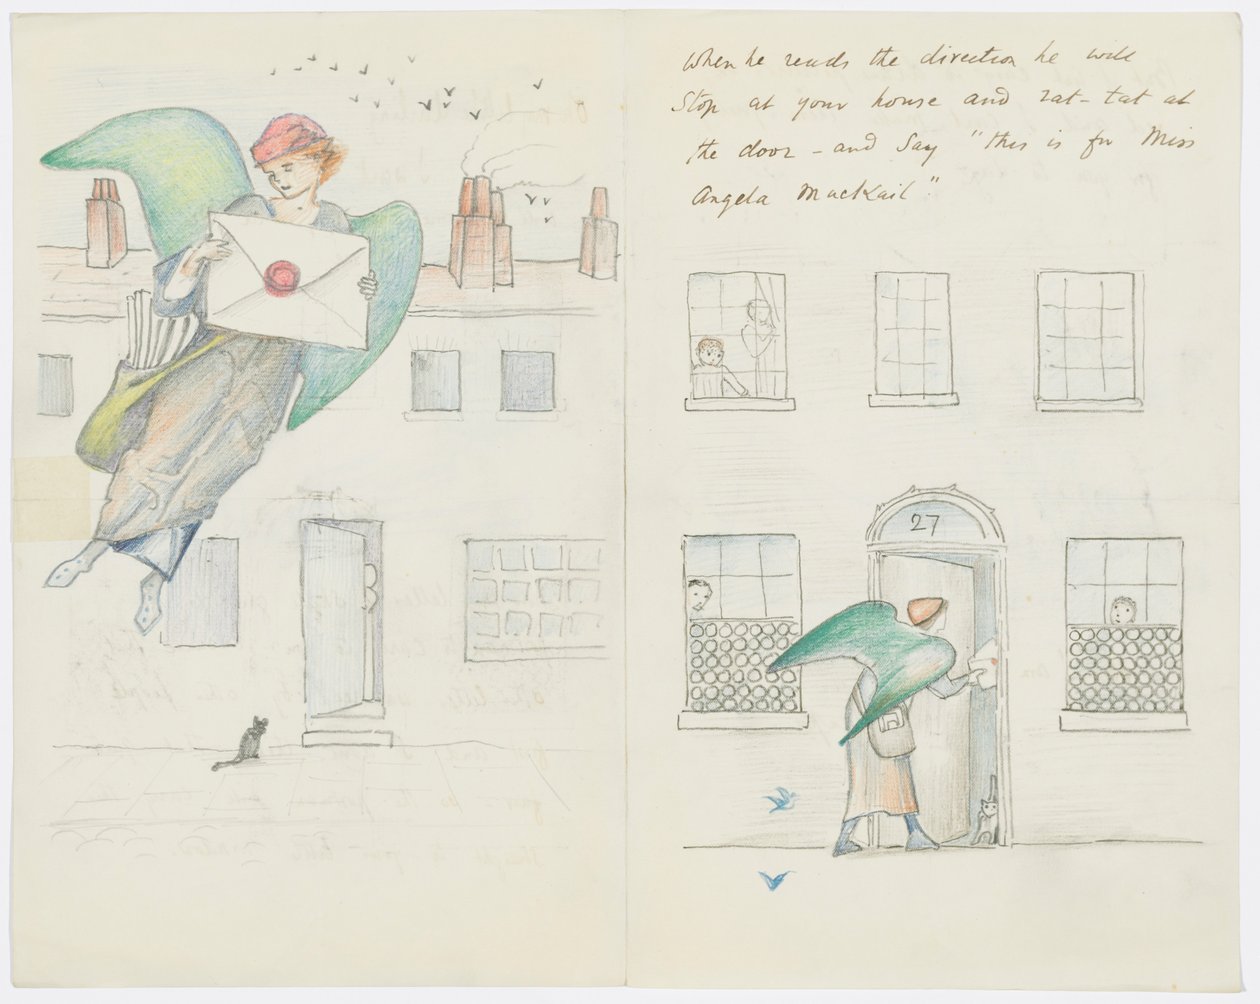 When he reads the direction he will
Stop at your house and rat-tat at
the door - and Say "this is for Miss
Angela MacKail".
27